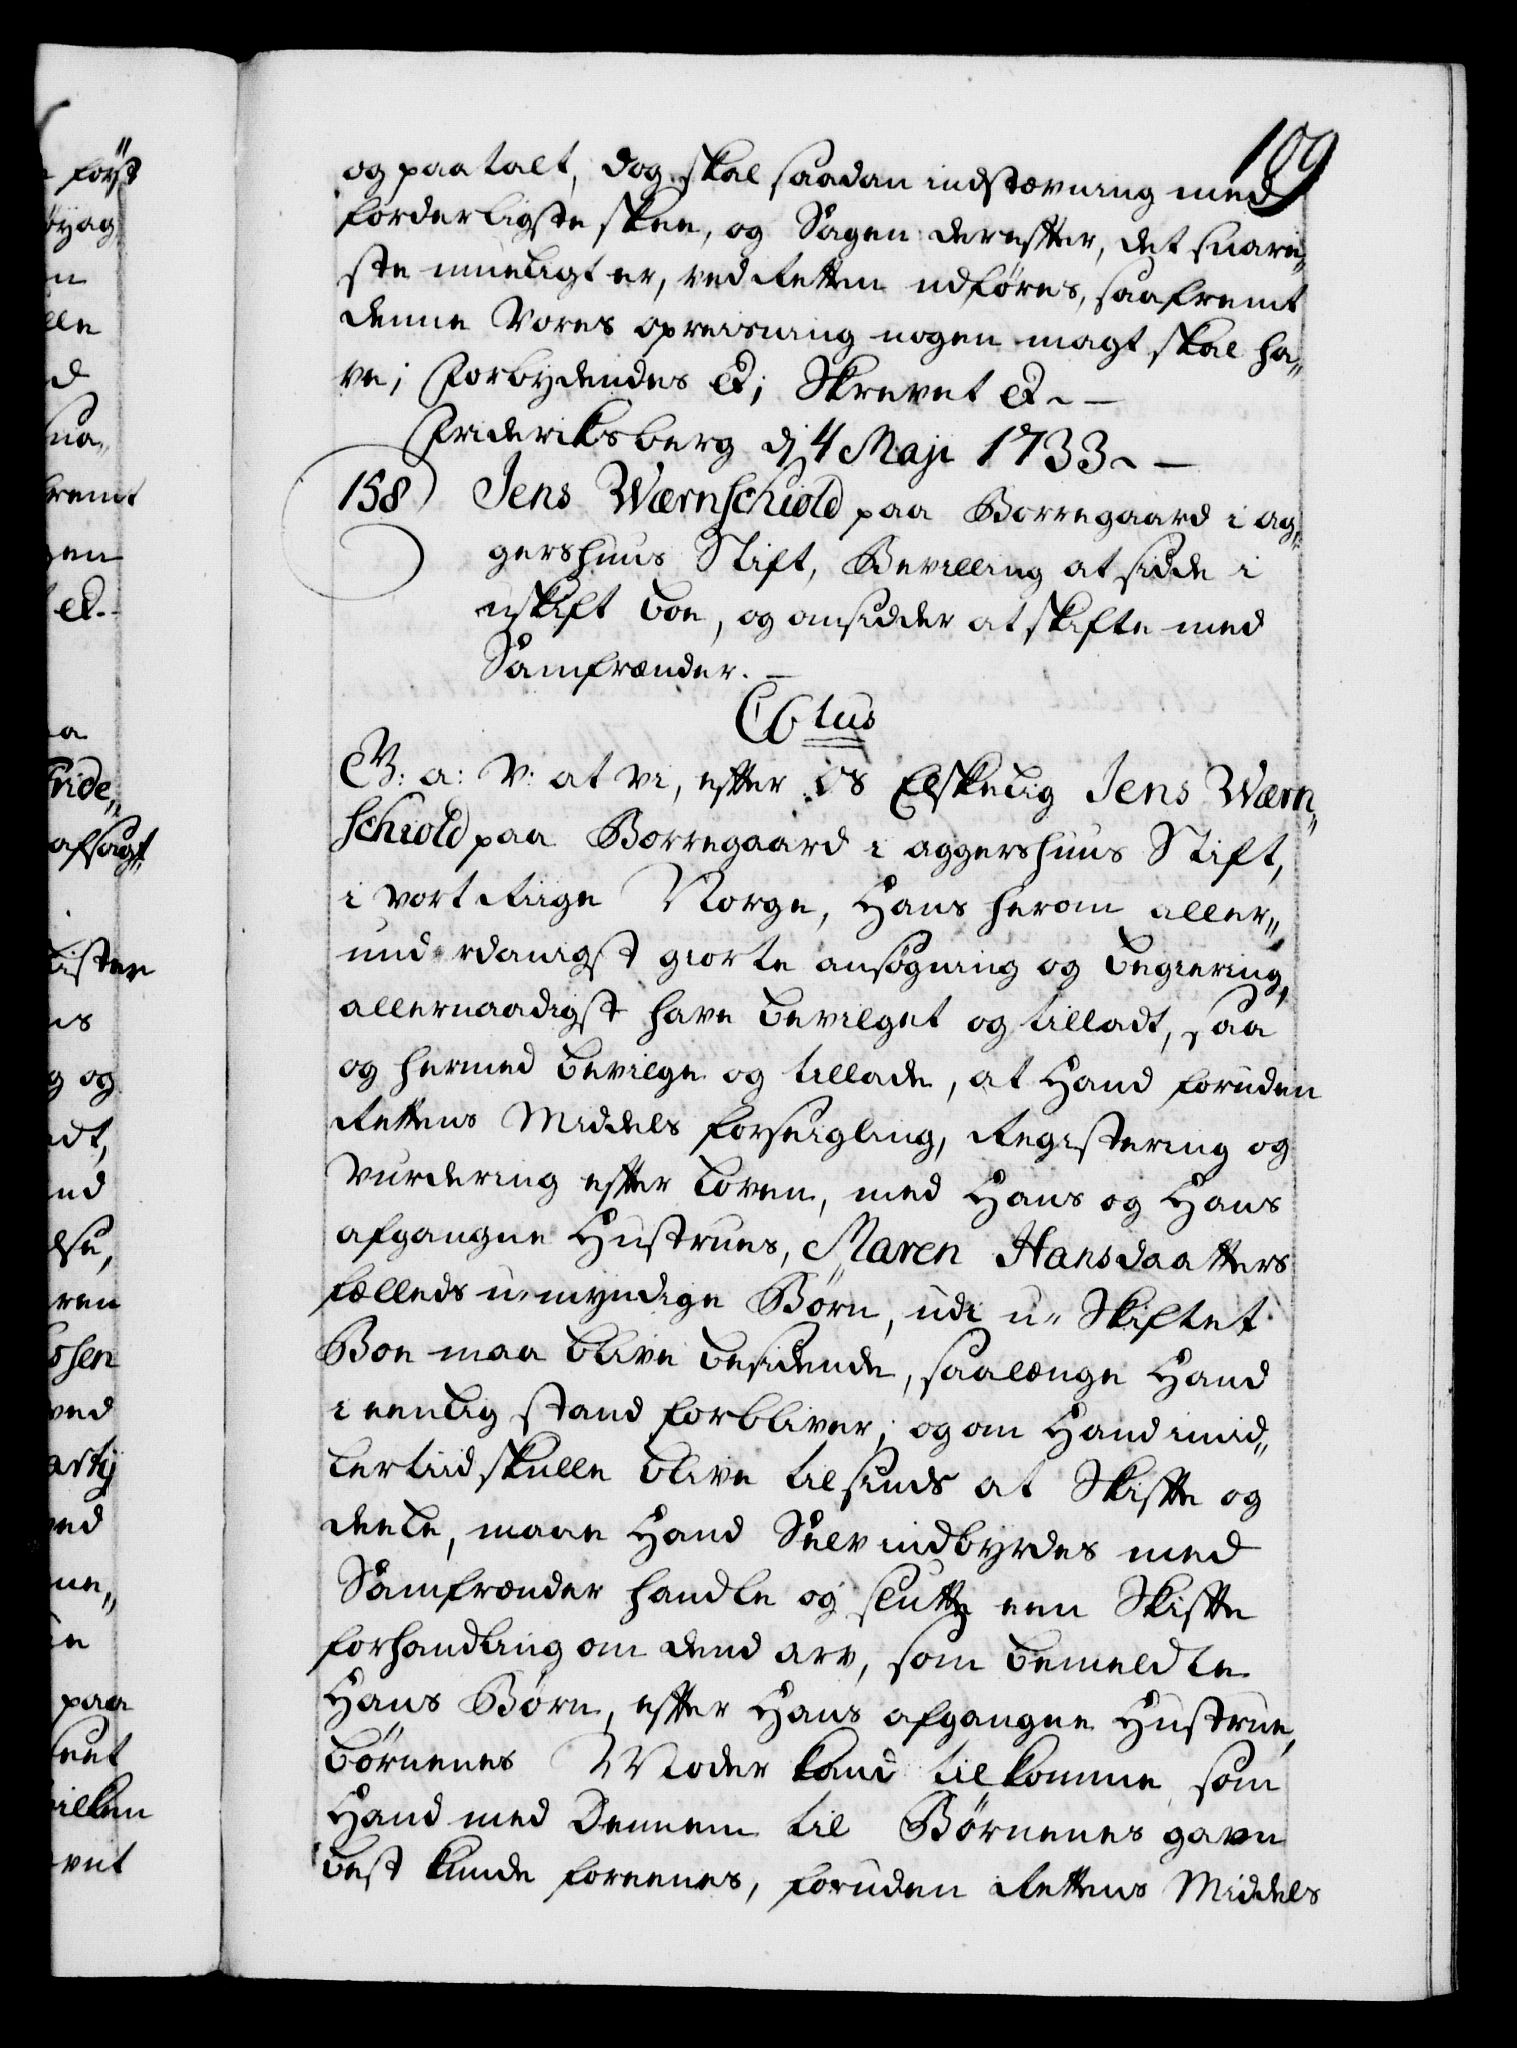 109
og paatalt, dog skal saadan indstævning med
forderligste skee, og Sagen derefter, det snare„
ste mueligt er, ved Retten udføres, saafremt
denne Vores opreisning nogen magt skal ha„
ve; Forbydendes &; Skrevet & —
Frideriksberg dj 4 Maji 1733 —
158 Jens Wærnschiold paa Borregaard i ag„
gershuus Stift, Bevilling at sidde i
uskift boe, og omsidder at skifte med
Samfrænder. —
C6tus
G: a: V: at vi, efter os Elskelig Jens Wærn„
schiold paa Borregaard i aggershuus Stift,
i vort Riige Norge, Hans herom aller„
underdanigst giorte ansøgning og begiering,
allernaadigst have bevilget og tilladt, saa
og hermed bevilge og tillade, at Hand foruden
Rettens Middels forseigling, Registering og
Vurdering efter loven, med Hans og Hans
afgangne Hustrues, Maren Hansdaatters
fælleds u-myndige Børn, udi u-Skiftet
Boe maa blive besidende, saalænge Hand
i eenlig stand forbliver; og om Hand imid„
lertiid skulle blive tilsinds at Skifte og
deele, maae Hand Selv indbyrdes med
Samfrænder handle og slutte een Skifte
forhandling om dend arv, som bemeldte
Hans Børn, efter Hans afgangne Hustrue,
børnenes Moder kand tilkomme, som
Hand med Dennem til Børnenes gavn
best kunde foreenes, foruden Rettens Middels